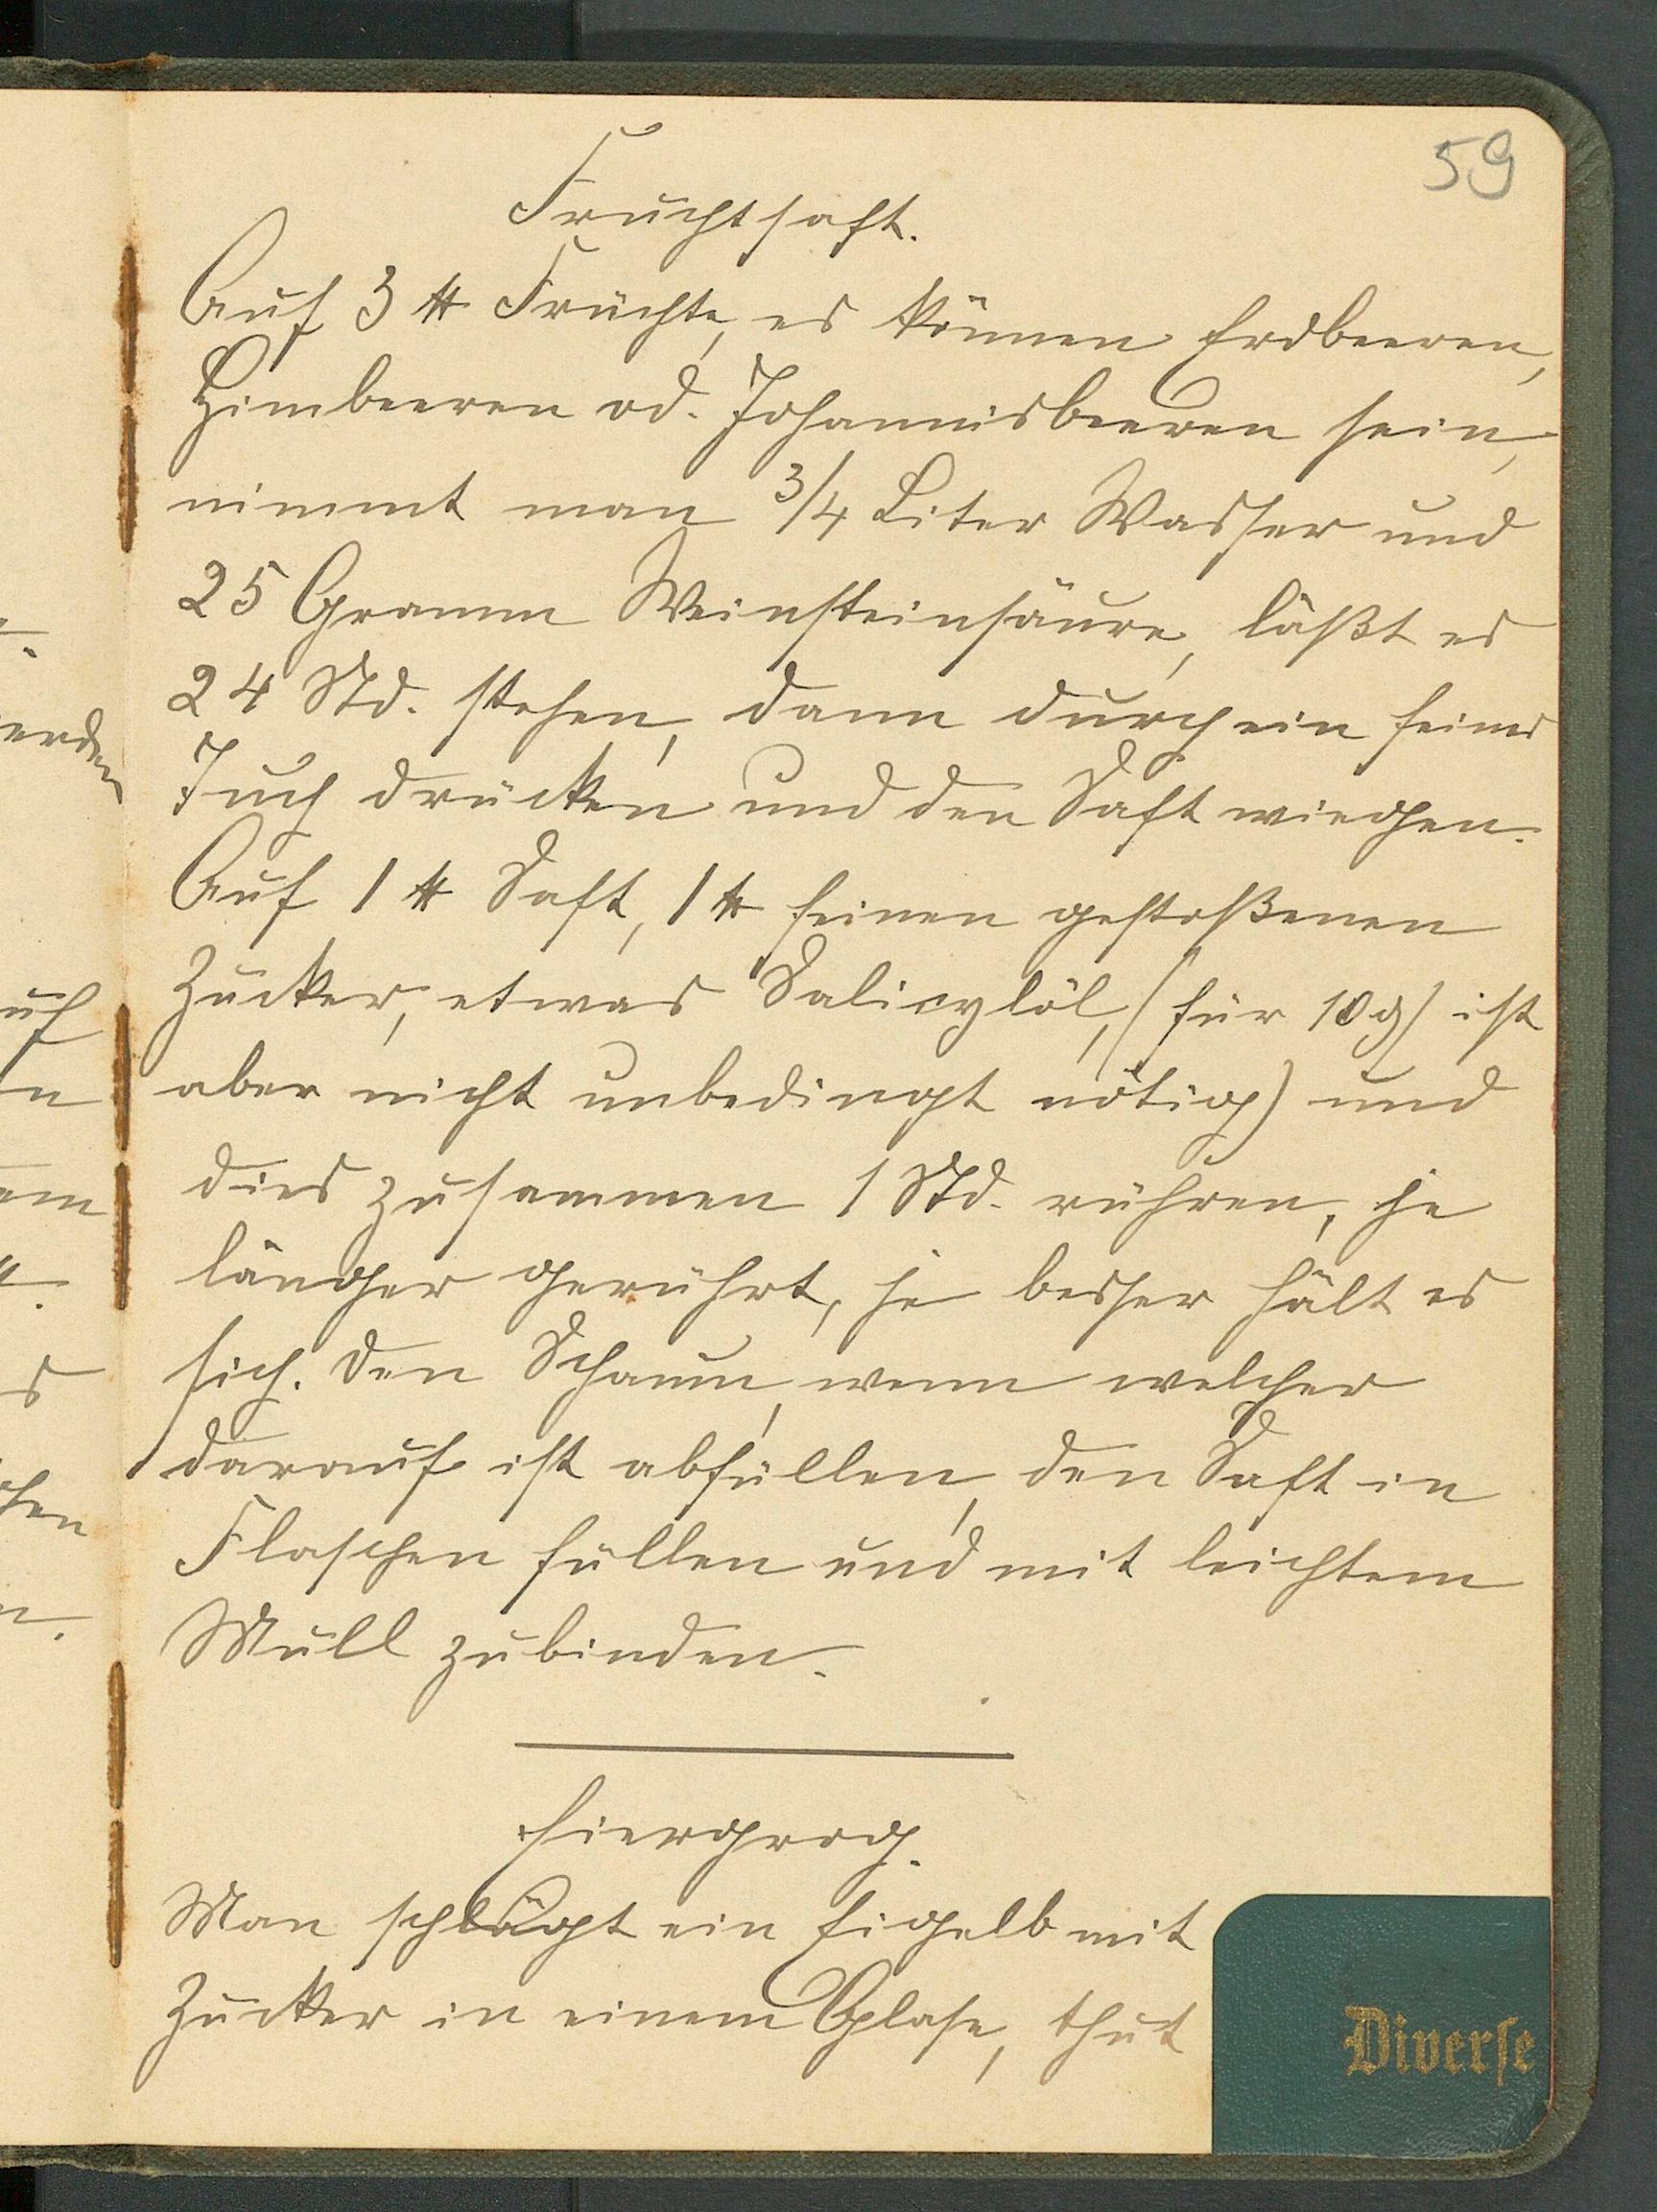 59
Fruchtsaft.
Auf 3 ℔ Früchte, es können Erdbeeren,
Himbeeren od. Johannisbeeren sein,
nimmt man 3/4 Liter Wasser und
25 Gramm Weinsteinsäure, läßt es
24 Std. stehen, dann durch ein feines
Tuch drücken und den Saft wiegen.
Auf 1 ℔ Saft, 1 ℔ feinen gestoßenen
Zucker, etwas Salicylöl, (für 10 ₰ ist
aber nicht unbedingt nötig) und
dies zusammen 1 Std. rühren, je
länger gerührt, je besser hält es
sich. Den Schaum, wenn welcher
darauf ist abfüllen, den Saft in
Flaschen füllen und mit leichtem
Mull zubinden.
Eiergrog.
Man schlägt ein Eigelb mit
Zucker in einem Glase, thut
Diverse
erden
uf
n
em
s
chen
n.